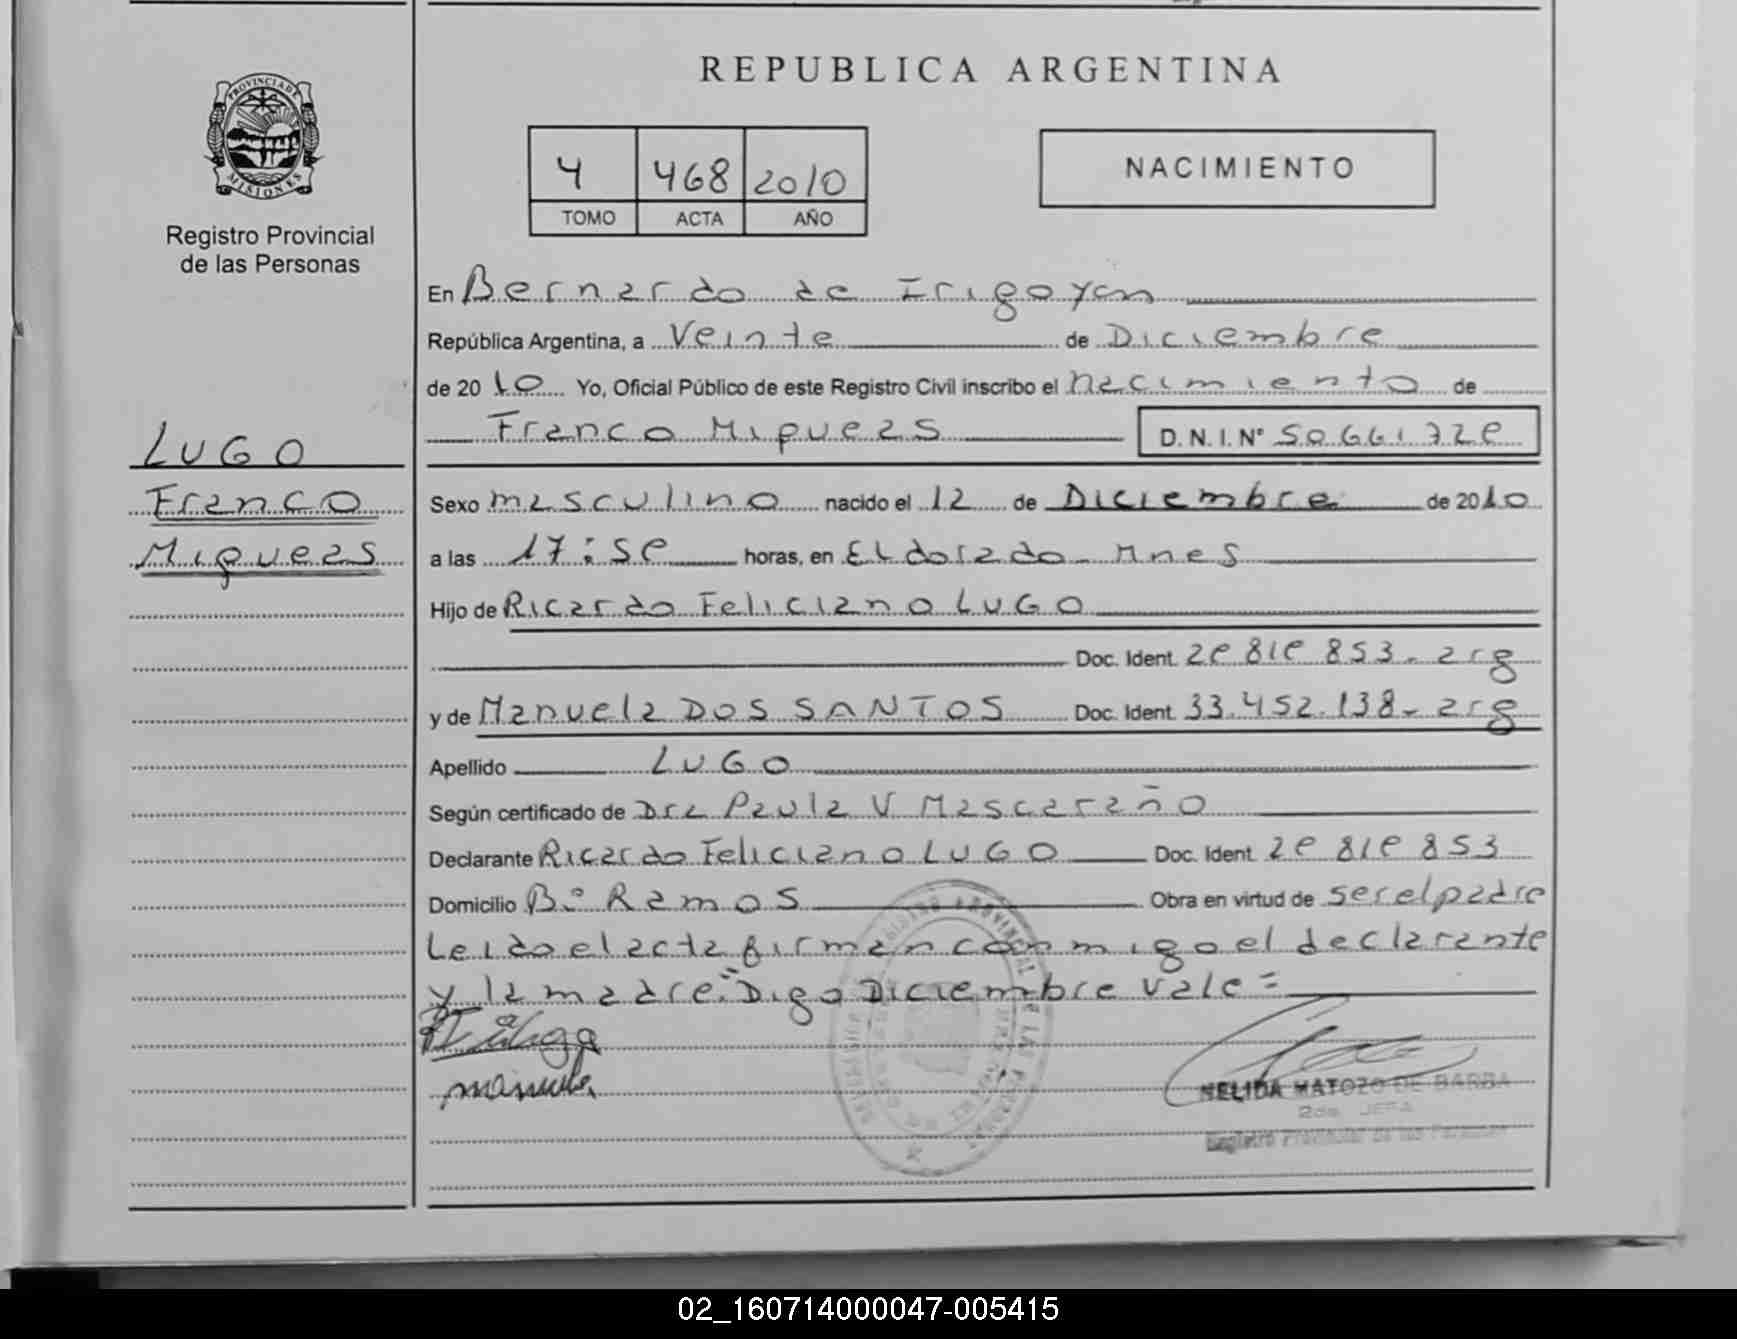 REPUBLICA ARGENTINA
PROVINCIA DE
MISIONES
Registro Provincial
de las Personas
4 468 2010
TOMO ACTA AÑO
NACIMIENTO
En Bernardo de Irigoyen
República Argentina, a Veinte de Diciembre
de 2010 Yo, Oficial Público de este Registro Civil inscribo el nacimiento de
Franco Miqueas D.N.I.Nº 50661720
LUGO
Franco
Miqueas
Sexo masculino nacido el 12 de Diciembre de 2010
a las 17:50 horas, en Eldorado Mnes
Hijo de Ricardo Feliciano LUGO
Doc. Ident. 20 810 853- arg
y de Manuela DOS SANTOS Doc. Ident. 33.452.138- arg
Apellido LUGO
Según certificado de Dra Paula V Mascaraño
Declarante Ricardo Feliciano LUGO Doc. Ident. 20 810 853
Domicilio Bº Ramos Obra en virtud de ser el padre
Leido el acta firman conmigo el declarante
y la madre. "Digo Diciembre Vale=
manuela
NELIDA MATOZO DE BARBA
2da JEFA
Registro Provincial de las Personas
02_160714000047-005415